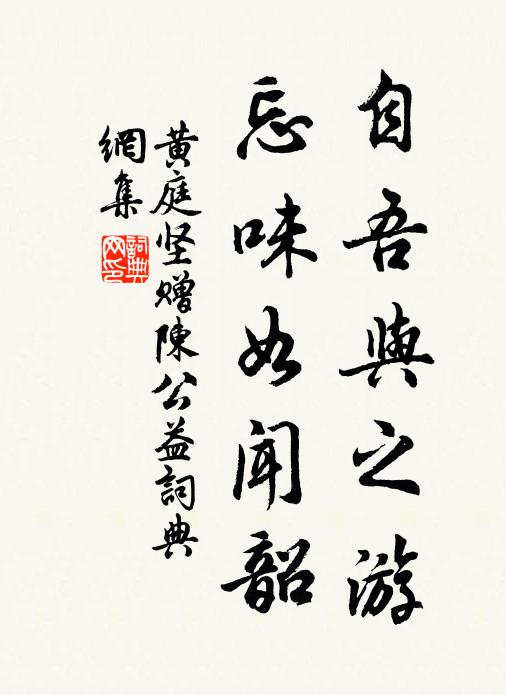 自吾與之游
忘味如聞韶
黃庭坚贈陳公益詞典
網集
詞典网印